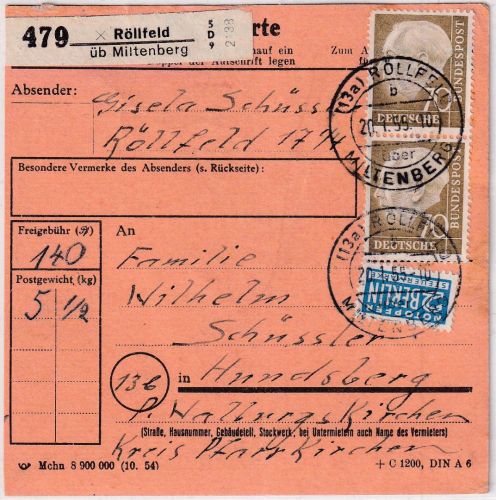 479 × Röllfeld
üb Miltenberg
5
D
9
rte
auf ein
Zum A
Doppel der Aufschrift legen
f
Absender:
Gisela Schüssler
Röllfeld 17
Besondere Vermerke des Absenders (s. Rückseite):
Freigebühr
140
Postgewicht (kg)
5 1/2
An
Familie
Wilhelm
Schüssler
13b
in Hundsberg
P. Walburgskirchen
(Straße, Hausnummer, Gebäudeteil, Stockwerk, bei Untermietern auch Name des Vermieters)
Kreis Pfarrkirchen
Mchn 8 900 000 (10. 54)
+ C 1200, DIN A 6
DEUTSCHE BUNDESPOST
70
DEUTSCHE BUNDESPOST
70
(13a) RÖLLFELD
b
über
MILTENBERG
(13a) RÖLLF
NOTOPFER
2 BERLIN
STEUERMARKE